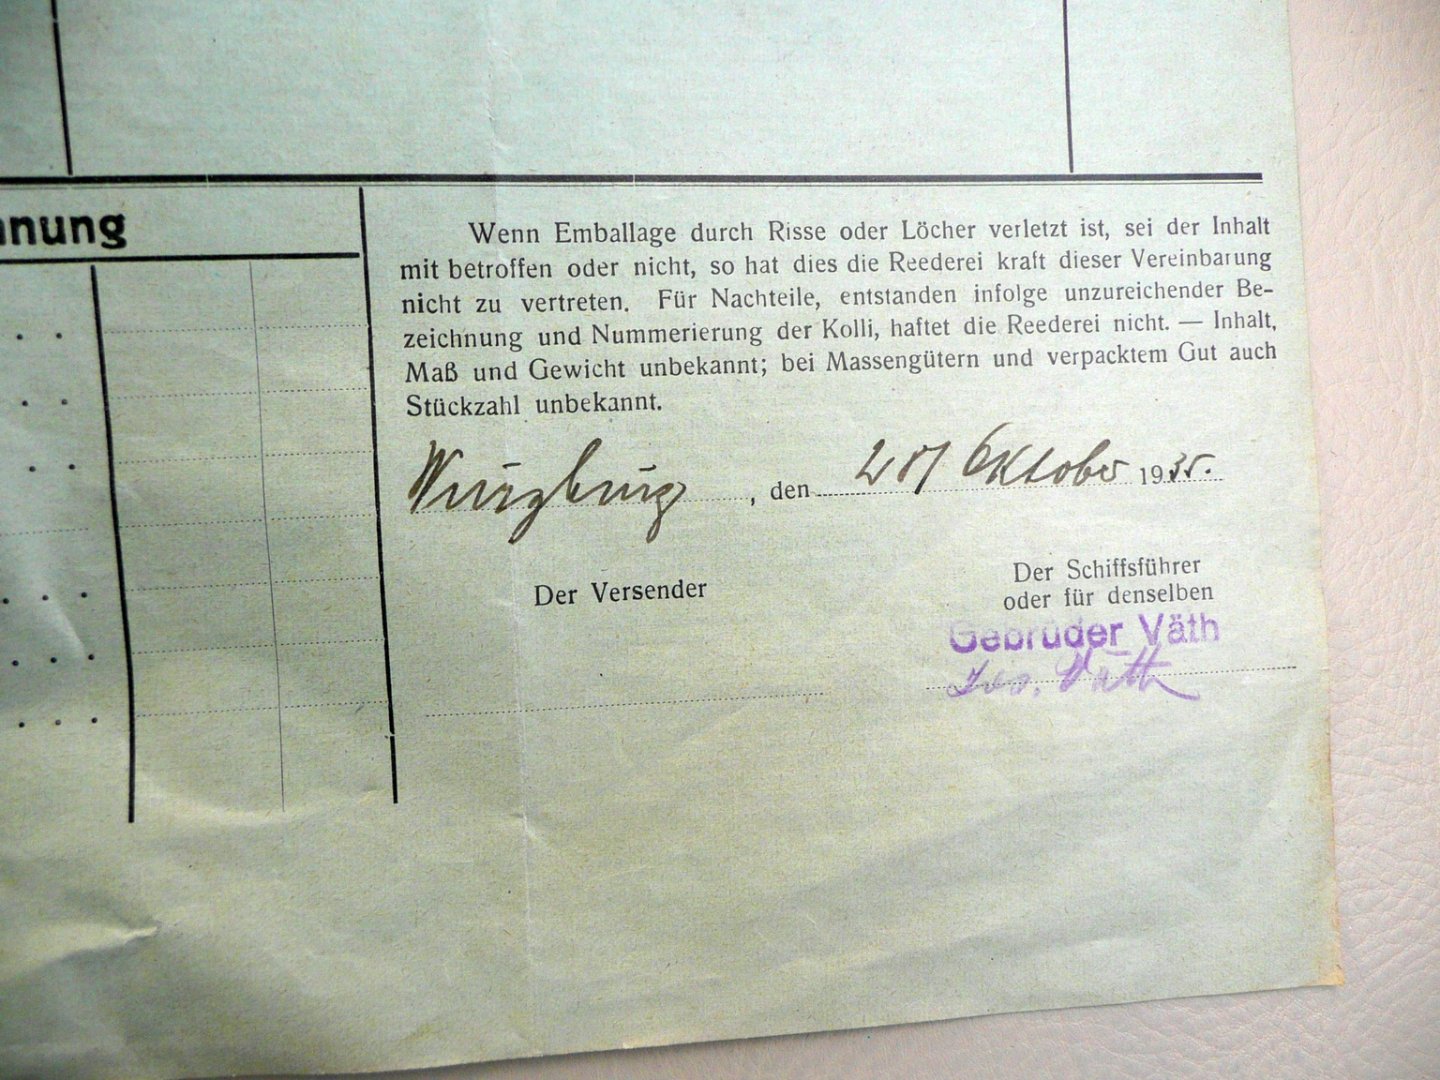 nnung
Wenn Emballage durch Risse oder Löcher verletzt ist, sei der Inhalt
mit betroffen oder nicht, so hat dies die Reederei kraft dieser Vereinbarung
nicht zu vertreten. Für Nachteile, entstanden infolge unzureichender Be-
zeichnung und Nummerierung der Kolli, haftet die Reederei nicht. — Inhalt,
Maß und Gewicht unbekannt; bei Massengütern und verpacktem Gut auch
Stückzahl unbekannt.
Würzburg, den Oktober 1935.
Der Versender
Der Schiffsführer
oder für denselben
Gebrüder Väth
Jos. Väth